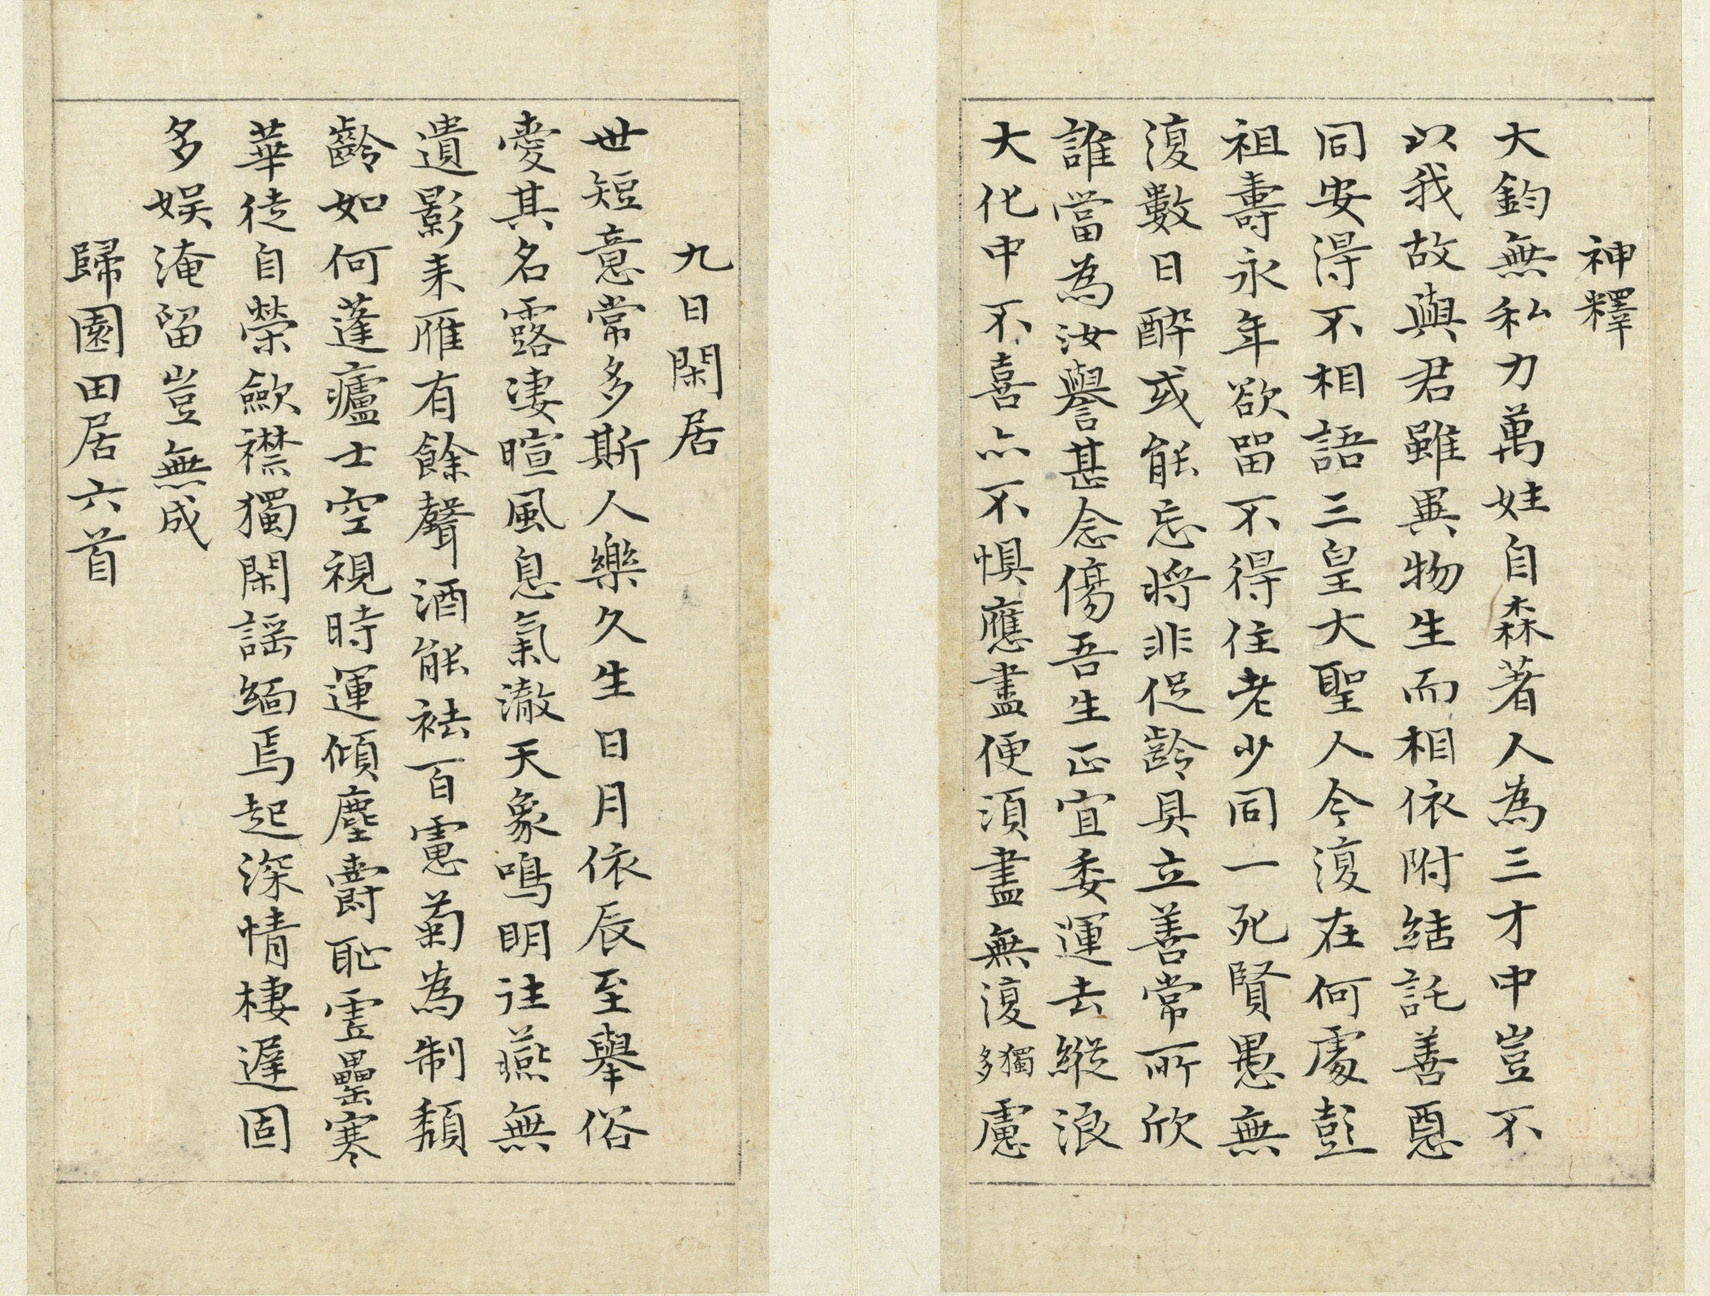 神釋
大鈞無私力萬姓自森著人為三才中豈不
以我故與君雖異物生而相依附結託善惡
同安得不相語三皇大聖人今復在何處彭
祖壽永年欲留不得住老少同一死賢愚無
復數日醉或能忘將非促齡具立善常所欣
誰當為汝譽甚念傷吾生正宜委運去縱浪
大化中不喜亦不懼應盡便須盡無復獨多慮
九日閑居
世短意常多斯人樂久生日月依辰至舉俗
愛其名露淒暄風息氣澈天象鳴明往燕無
遺影来雁有餘聲酒能袪百慮菊為制頹
齡如何蓬廬士空視時運傾塵爵恥虛罍寒
華徒自榮歛襟獨閑謡緬焉起深情棲遲固
多娛淹留豈無成
歸園田居六首